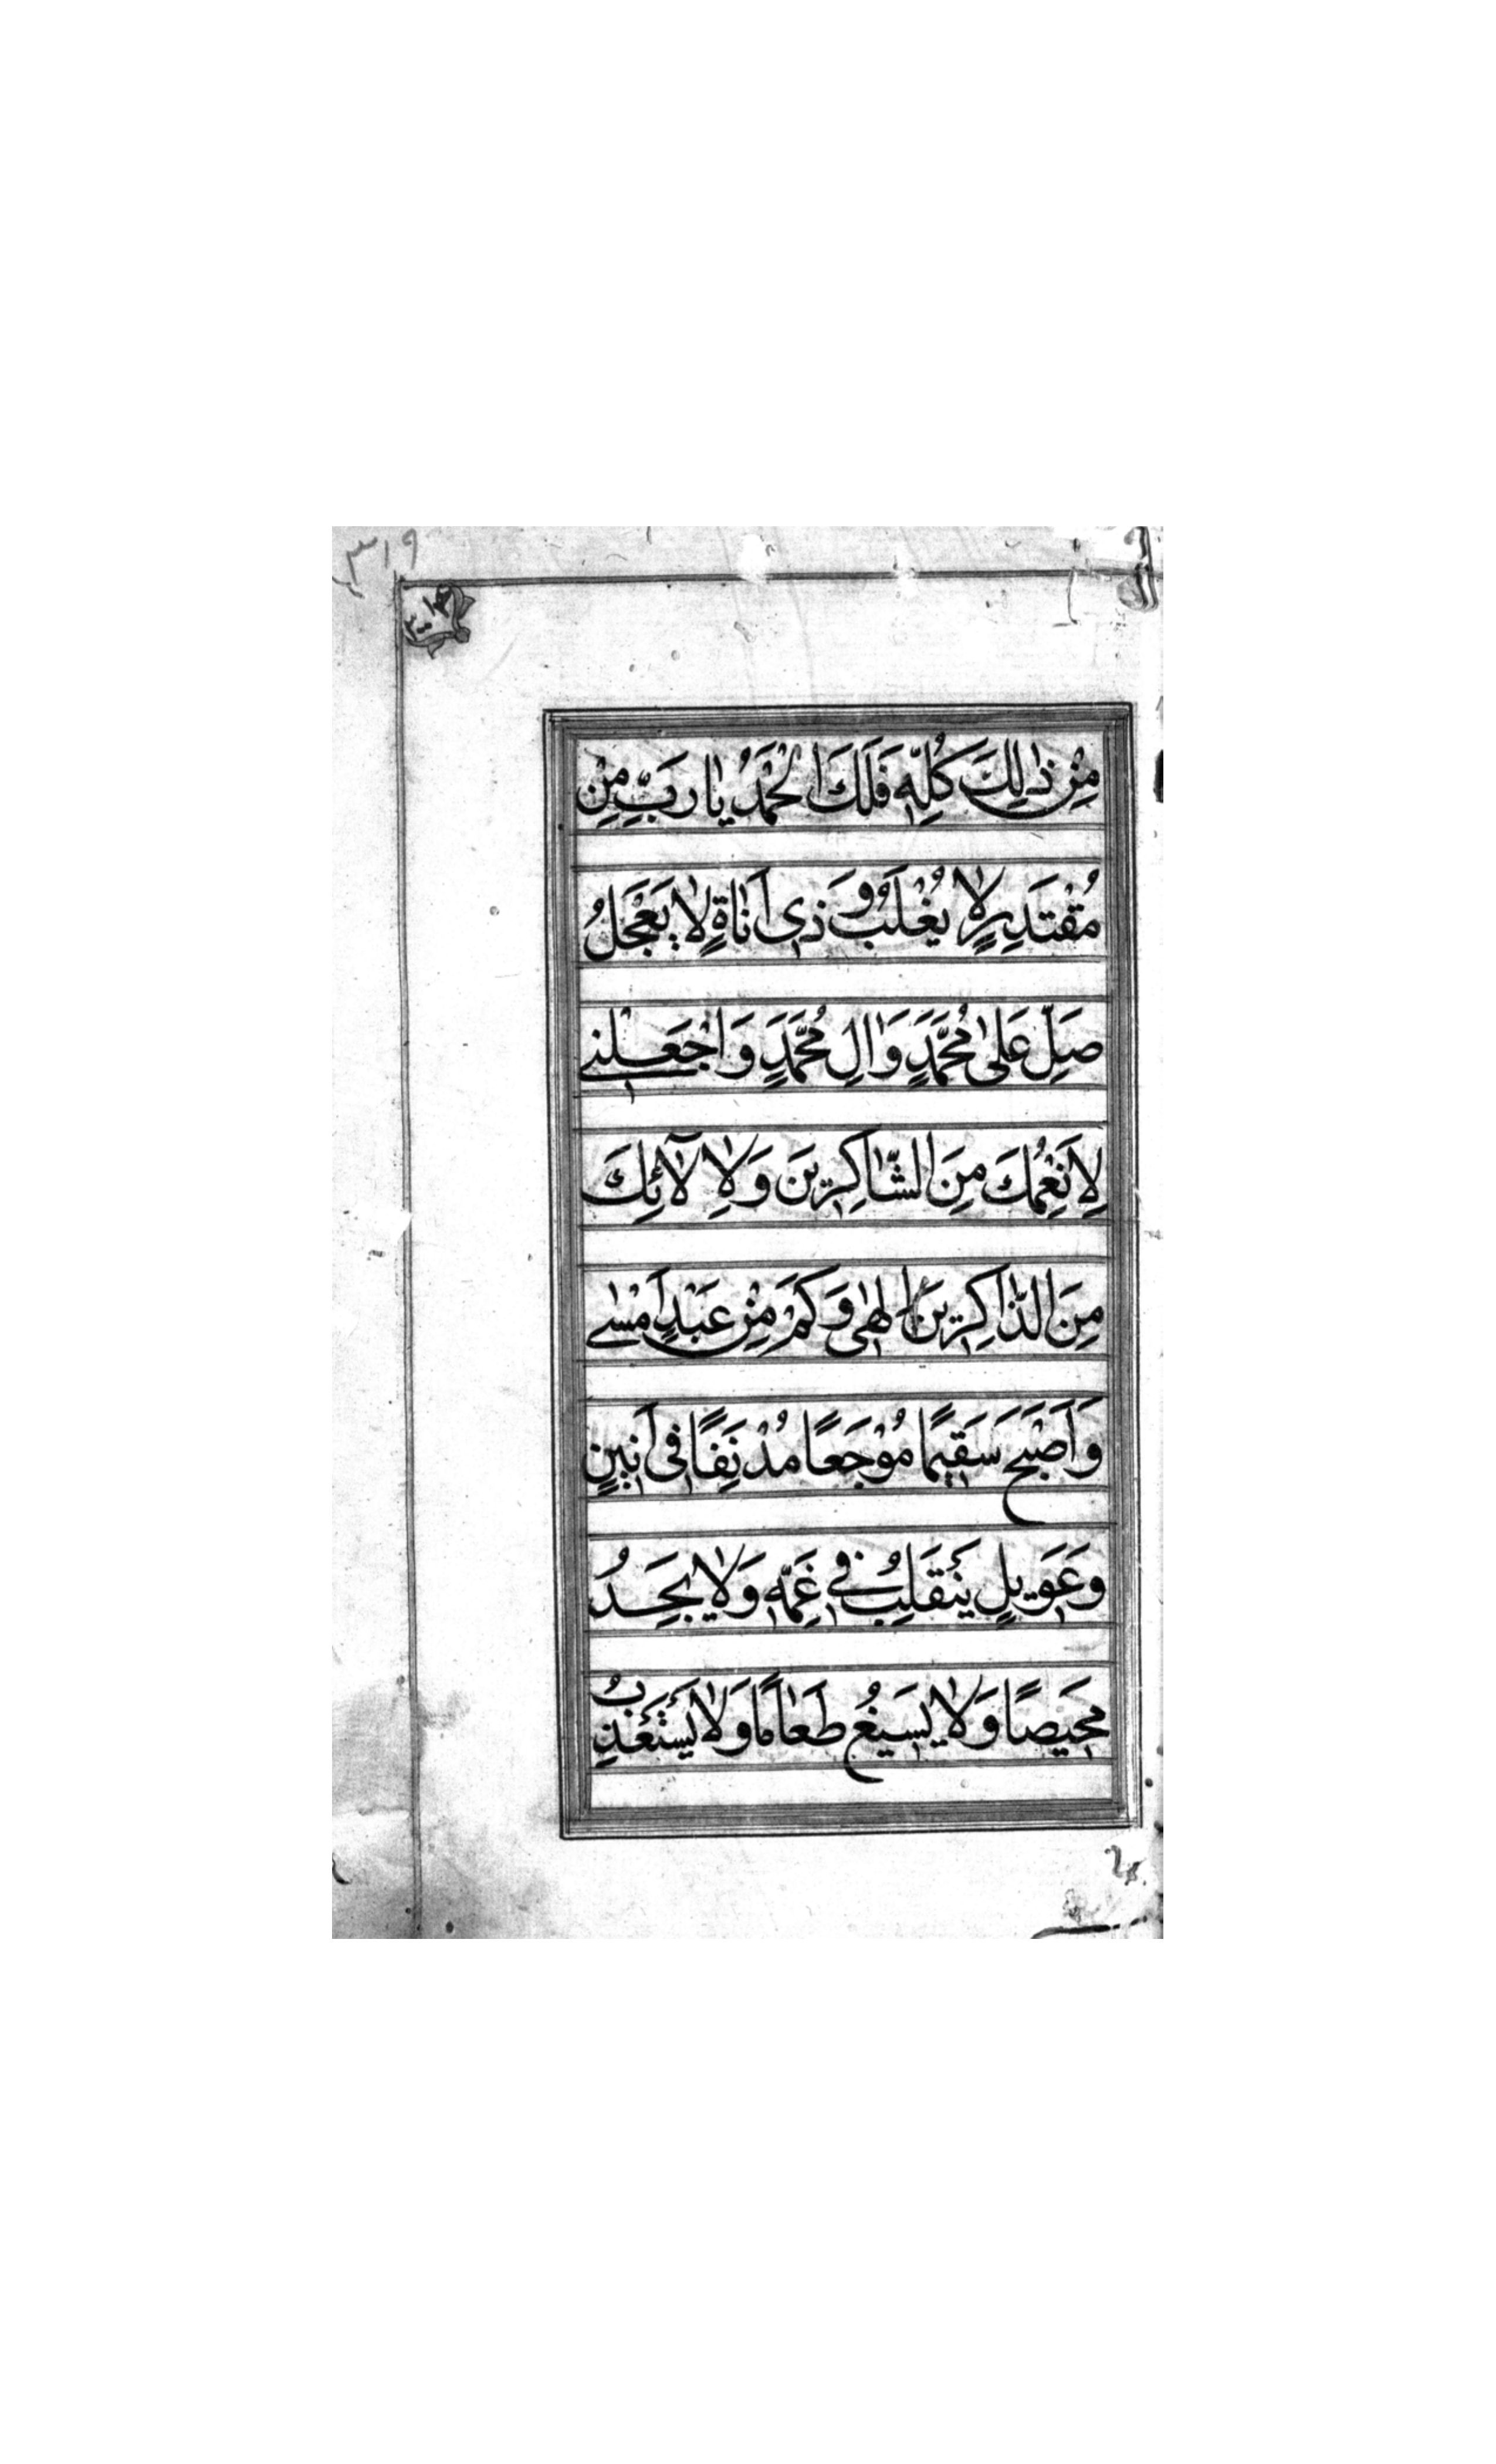 ٣١٩
مِنْ ذٰلِكَ كُلِّهِ فَلَكَ الْحَمْدُ يٰا رَبِّ مِنْ
مُقْتَدِرٍ لٰا يُغْلَبُ وَ ذِي اَنٰاةٍ لٰا يَعْجَلُ
صَلِّ عَلىٰ مُحَمَّدٍ وَاٰلِ مُحَمَّدٍ وَاجْعَلْنِي
لِاَنْعُمِكَ مِنَ الشّٰاكِرِينَ وَلِاٰلٰائِكَ
مِنَ الذّٰاكِرِينَ اِلٰهِي وَكَمْ مِنْ عَبْدٍ اَمْسٰى
وَاَصْبَحَ سَقِيمًا مُوْجَعًا مُدْنِفًا فِي اَنِينٍ
وَعَوِيلٍ يَنْقَلِبُ فِي غَمِّهِ وَلٰا يَجِدُ
مَحِيصًا وَلٰا يُسِيغُ طَعٰامًا وَلٰا يَسْتَعْذِبُ